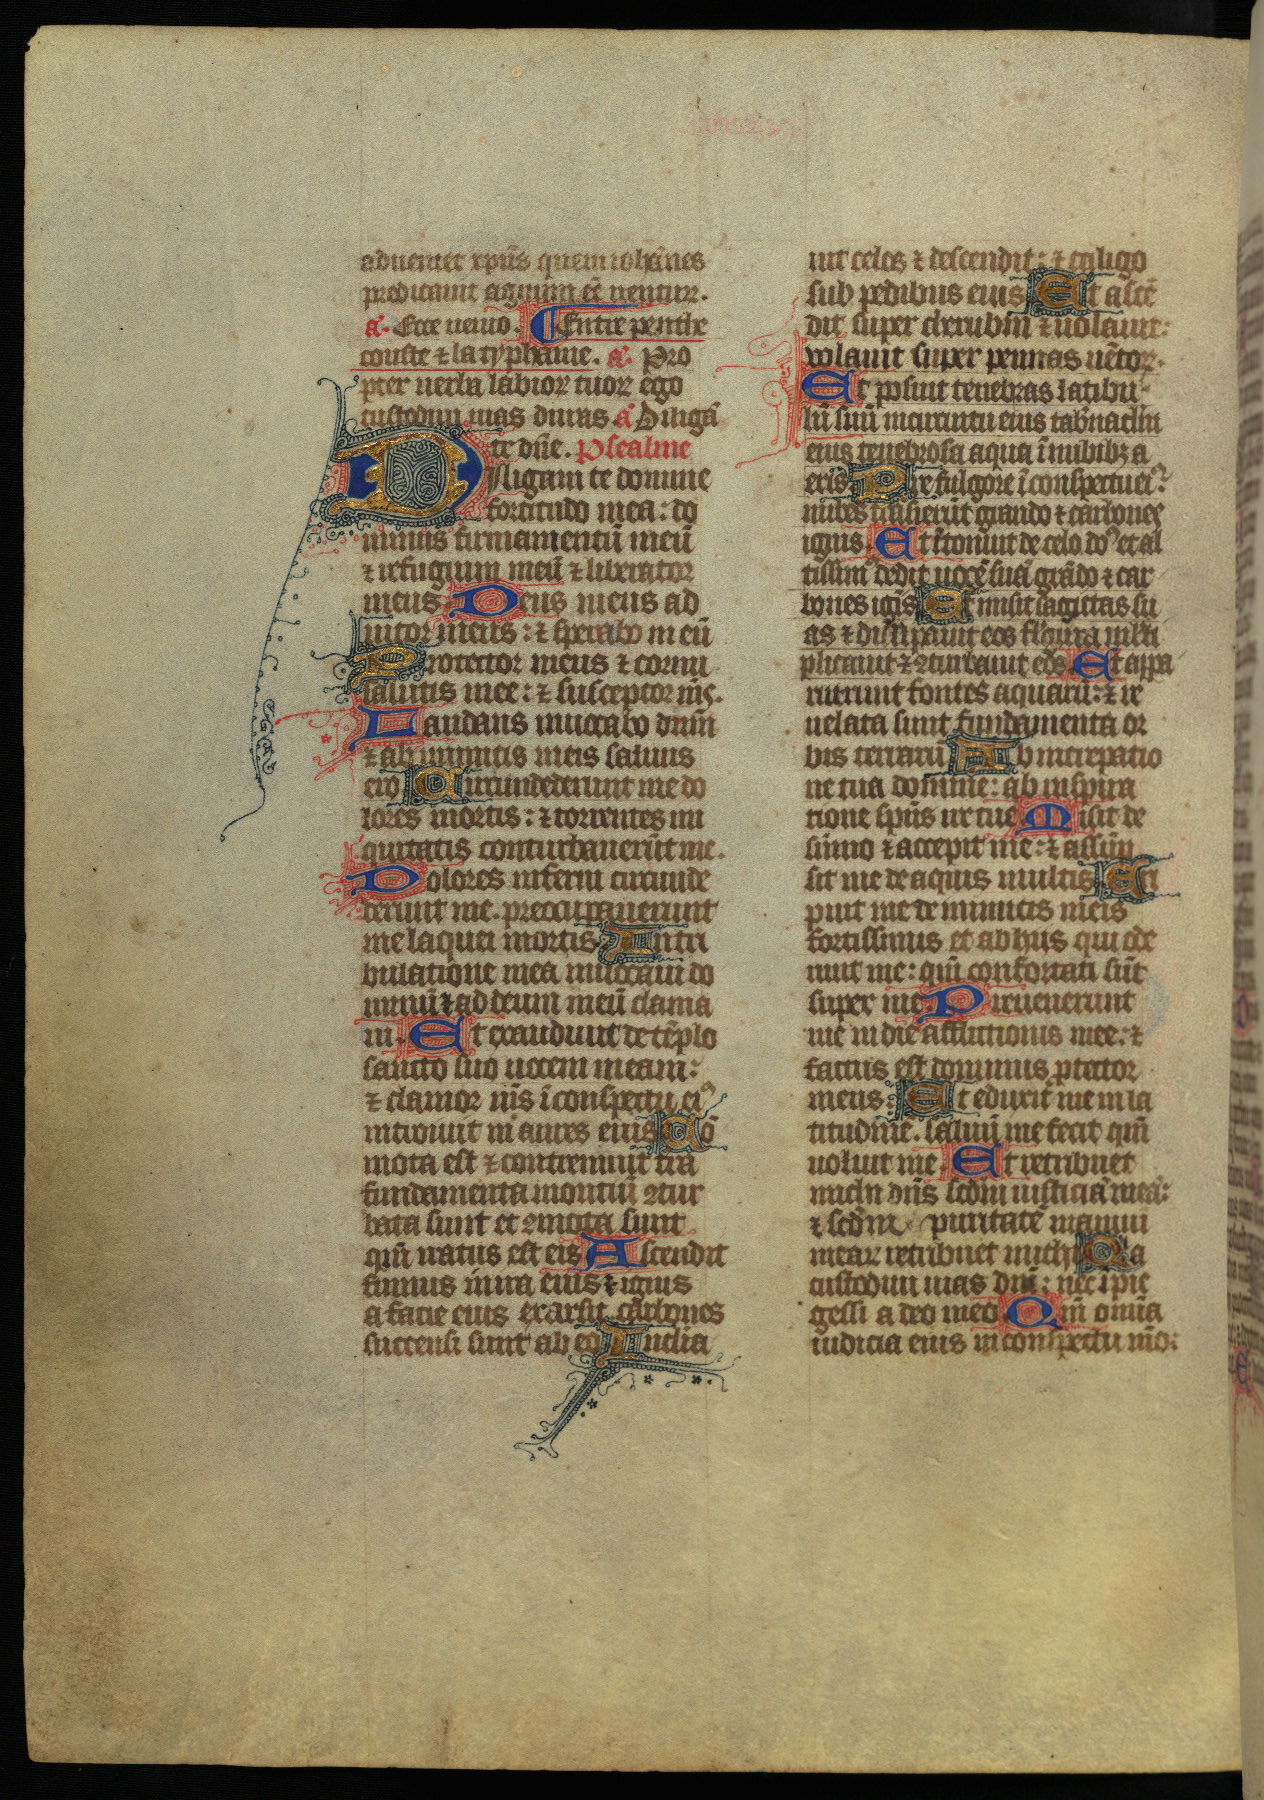 adueniet xpūs quem iohānes
predicauit agnum ēē uentur.
a. Ecce uenio. Entre penthe
couste et la typhaine. a. Pro
pter uerba labior tuor ego
custodiui uias duras a Diligā
te dn̄e. Psealme
Diligam te domine
fortitudo mea: do
minus firmamentū meū
⁊ refugium meū ⁊ liberator
meus. Deus meus ad
iutor meus: ⁊ sperabo in eū
Protector meus ⁊ cornu
salutis mee: ⁊ susceptor ms̄.
Laudans inuocabo dnm̄
⁊ ab inimicis meis saluus
ero Circundederunt me do
lores mortis: ⁊ torrentes ini
quitatis conturbauerūt me.
Dolores inferni circunde
derunt me. preoccupauerunt
me laquei mortis. In tri
bulatione mea inuocaui do
minū ⁊ ad deum meū clama
ui. Et exaudiuit de tēplo
sancto suo uocem meam:
⁊ clamor ms̄ ī conspectu ei9
introiuit in aures eius Cō
mota est ⁊ contremuit tr̄a
fundamenta montiū ꝯtur
bata sunt et ꝯmota sunt
qm̄ iratus est eis Ascendit
fumus in ira eius ⁊ ignis
a facie eius exarsit. carbones
succensi sunt ab eo Inclia
uit celos ⁊ descendit: ⁊ caligo
sub pedibus eius Et ascē
dit super cherubin ⁊ uolauit:
uolauit super pennas uētor.
Et posuit tenebras latibu
lū suū in circuitu eius tab̄naclm̄
eius tenebrosa aqua ī nubibꝫ a
eris Pre fulgore ī conspectu ei9:
nubes trāsierūt grando ⁊ carbones
ignis Et ītonuit de celo do9 et al
tissim9 dedit uocē suā grādo ⁊ car
bones igīs Et misit sagittas su
as ⁊ dissipauit eos fulgura multi
plicauit ⁊ ꝯturbauit eos Et appa
ruerunt fontes aquarū: ⁊ re
uelata sunt fundamenta or
bis terrarū Ab increpatio
ne tua domine: ab inspira
tione spūs ire tue Misit de
sūmo ⁊ accepit me: ⁊ assūp
sit me de aquis multis Eri
puit me de inimicis meis
fortissimis et ab hiis qui ode
runt me: qm̄ confortati sūt
super me. Preuenerunt
me in die afflictionis mee: ⁊
factus est dominus ꝓtector
meus: Et eduxit me in la
titudinē. saluū me fecit qm̄
uoluit me. Et retribuet
michi dn̄s scdm̄ iusticiā meā:
⁊ scdm̄ puritatē manuū
mear retribuet michi Qia
custodiui uias dnī: nec īpie
gessi a deo meo Qm̄ omīa
iudicia eius in conspectu mō: